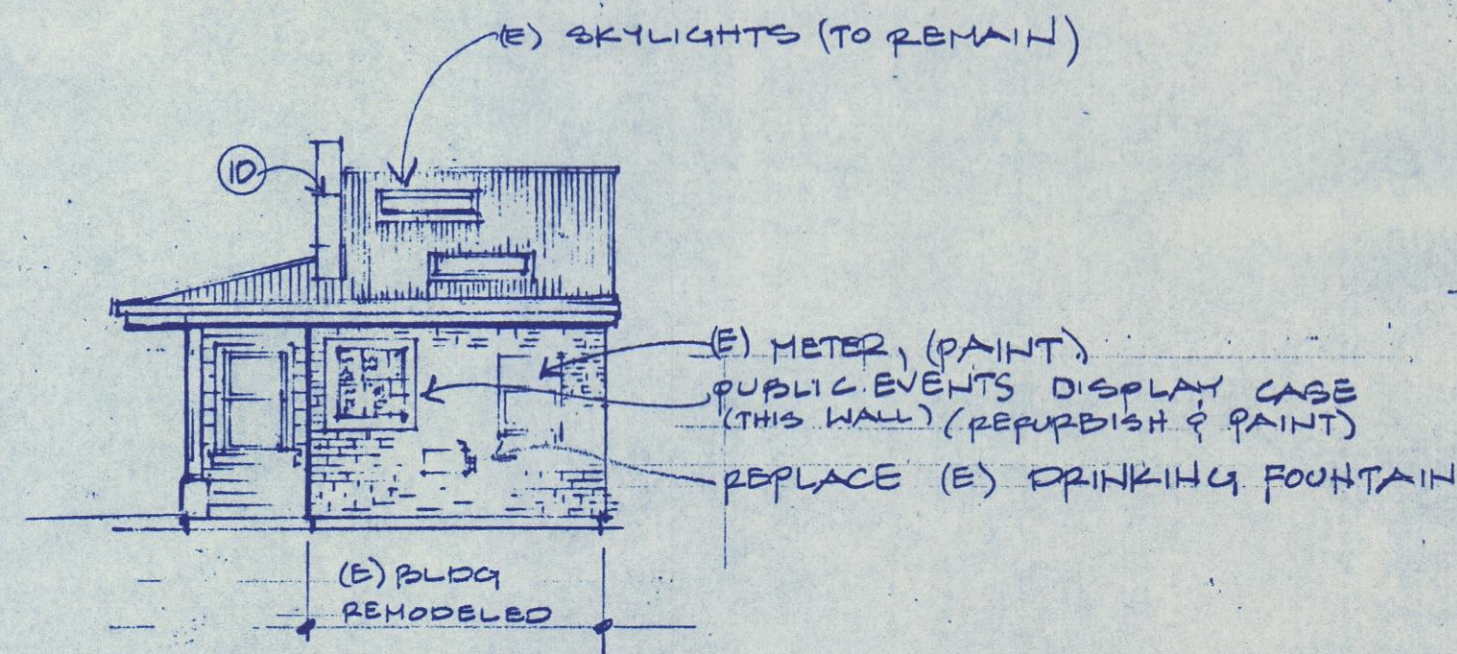 (E) SKYLIGHTS (TO REMAIN)
10
(E) METER, (PAINT)
PUBLIC EVENTS DISPLAY CASE
(THIS WALL) (REFURBISH & PAINT)
REPLACE (E) DRINKING FOUNTAIN
(E) BLDG
REMODELED